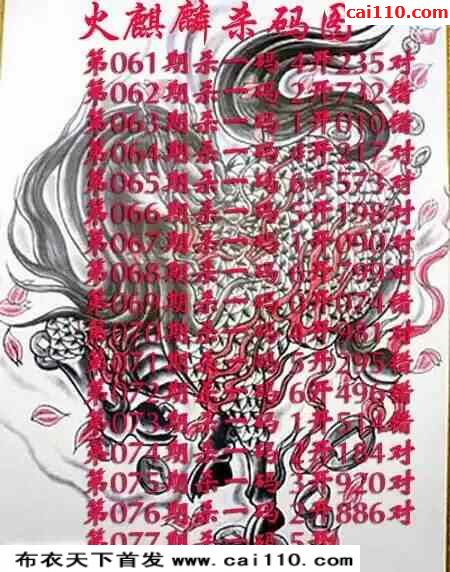 www.cai110.com
火麒麟杀码图
第061期杀一码 4开235对
第062期杀一码 2开 错
第063期杀一码 1开010错
第064期杀一码 4开217对
第065期杀一码 6开573对
第066期杀一码 5开198对
第067期杀一码 1开090对
第068期杀一码 6开799对
第069期杀一码 开074错
第070期杀一码 开981对
第071期杀一码 5开295错
第072期杀一码 6开496错
第073期杀一码 1开 错
第074期杀一码 开184对
第075期杀一码 3开920对
第076期杀一码 2开886对
第077期杀一码 5开
布衣天下首发 www.cai110.com